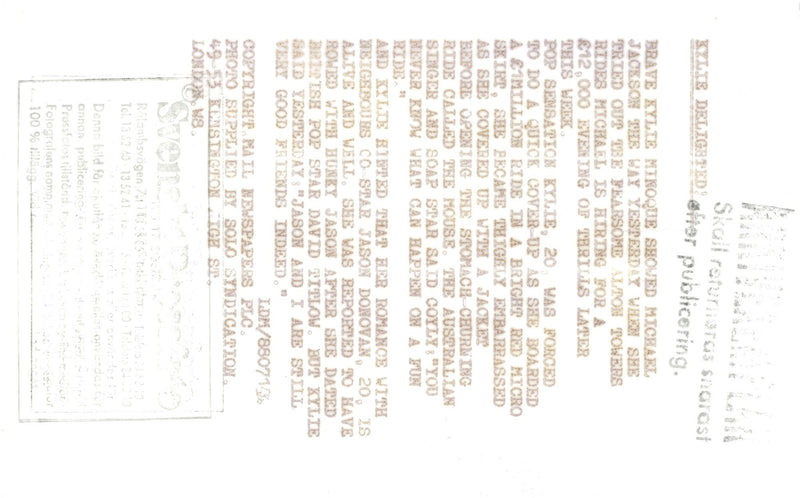 Skall returneras snarast
efter publicering.
KYLIE DELIGHTED:
BRAVE KYLIE MINOGUE SHOWED MICHAEL
JACKSON THE WAY YESTERDAY WHEN SHE
TRIED OUT THE FEARSOME ALTON TOWERS
RIDES MICHAEL IS HIRING FOR A
£72,000 EVENING OF THRILLS LATER
THIS WEEK.
POP SENSATION KYLIE, 20, WAS FORCED
TO DO A QUICK COVER-UP AS SHE BOARDED
A £1MILLION RIDE IN A BRIGHT RED MICRO
SKIRT, SHE BECAME THIGHLY EMBARRASSED
AS SHE COVERED UP WITH A JACKET
BEFORE OPENING THE STOMACH-CHURNING
RIDE CALLED THE MOUSE. THE AUSTRALIAN
SINGER AND SOAP STAR SAID COYLY:"YOU
NEVER KNOW WHAT CAN HAPPEN ON A FUN
RIDE."
AND KYLIE HINTED THAT HER ROMANCE WITH
NEIGHBOURS CO-STAR JASON DONOVAN, 20, IS
ALIVE AND WELL. SHE WAS REPORTED TO HAVE
ROWED WITH HUNKY JASON AFTER SHE DATED
BRITISH POP STAR DAVID TITLOW. BUT KYLIE
SAID YESTERDAY:"JASON AND I ARE STILL
VERY GOOD FRIENDS INDEED."
LDM/880713.
COPYRIGHT MAIL NEWSPAPERS PLC.
PHOTO SUPPLIED BY SOLO SYNDICATION.
49-53 KENSINGTON HIGH ST.
LONDON W8
Denna bild får
annan publicering
Fotografens namn
100 %